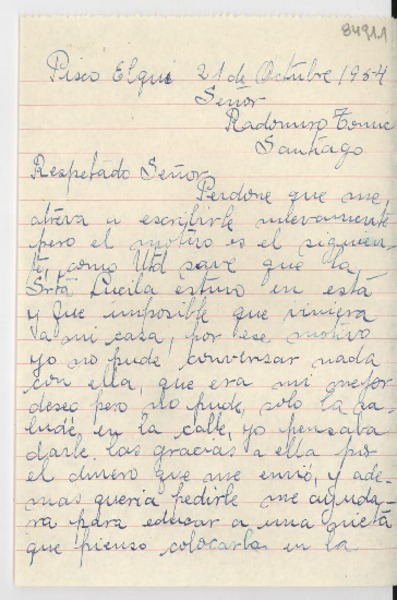 84911
Pisco Elqui 21 de Octubre 1954
Señor
Radomiro Tomic
Santiago
Respetado Señor
Perdone que me
atreva a escribirle nuevamente
pero el motivo es el siguien-
te, como Utd save que la
Srta Lucila estuvo en esta
y fue imposible que viniera
a mi casa, por ese motivo
yo no pude conversar nada
con ella, que era mi mejor
deseo pero no pude, solo la sa-
ludé en la calle, yo pensaba
darle las gracias a ella por
el dinero que me envió, y ade-
mas queria pedirle me ayuda-
ra para educar a una nieta
que pienso colocarla en la